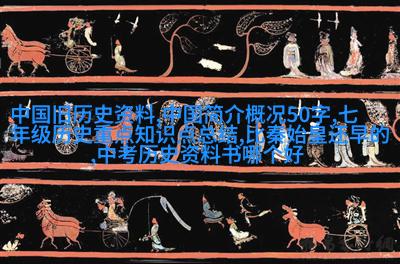 中国旧历史资料,中国简介概况50字,七
年级历史重点知识点总结,比秦始皇还早的
,中考历史资料书哪个好